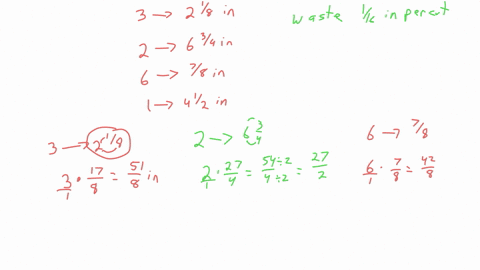 3 → 2 1/8 in
waste 1/16 in per cut
2 → 6 3/4 in
6 → 7/8 in
1 → 4 1/2 in
3 → 2 1/8
2 → 6 3/4
6 → 7/8
3/1 · 17/8 = 51/8 in
2/1 · 27/4 = 54÷2/4÷2 = 27/2
6/1 · 7/8 = 42/8